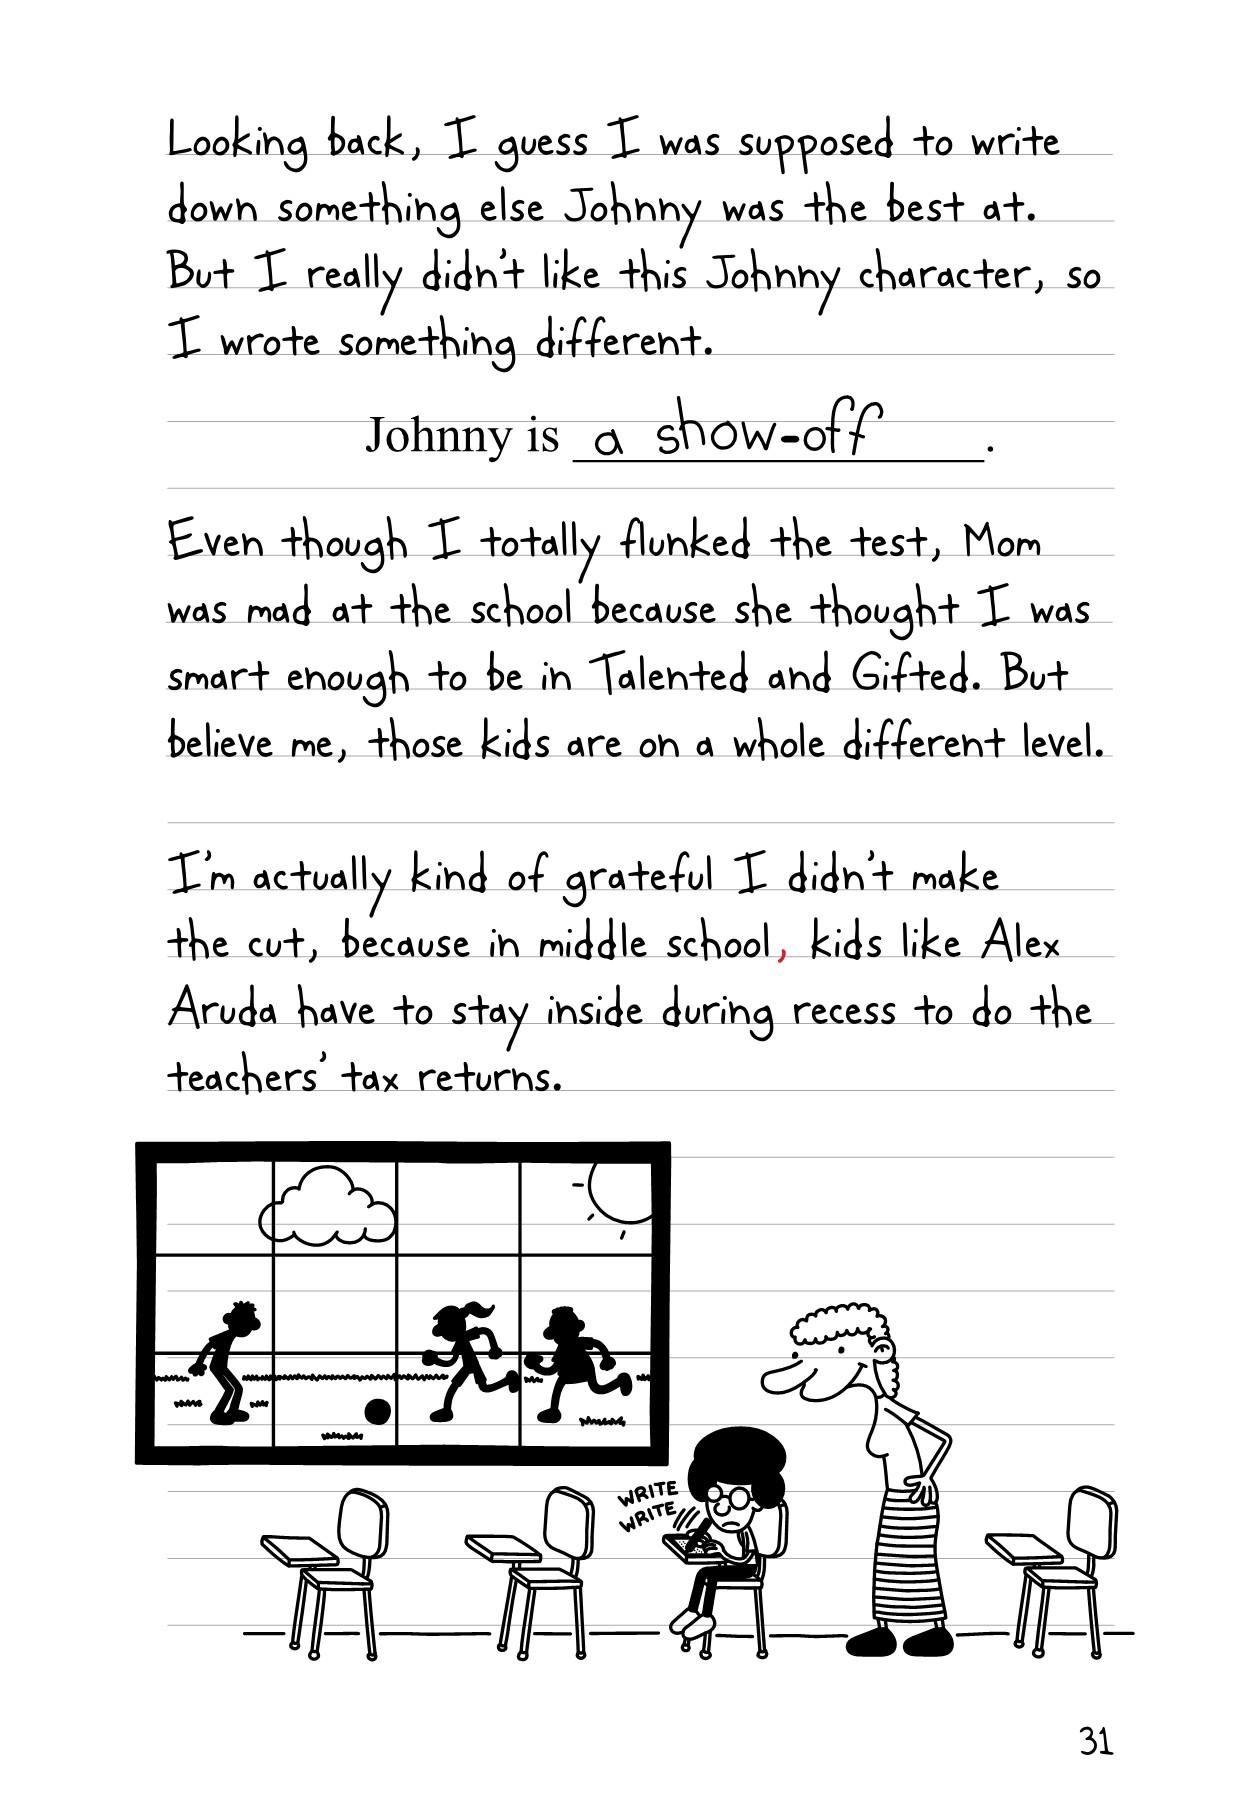 Looking back, I guess I was supposed to write
down something else Johnny was the best at.
But I really didn't like this Johnny character, so
I wrote something different.
Johnny is a show-off.
Even though I totally flunked the test, Mom
was mad at the school because she thought I was
smart enough to be in Talented and Gifted. But
believe me, those kids are on a whole different level.
I'm actually kind of grateful I didn't make
the cut, because in middle school, kids like Alex
Aruda have to stay inside during recess to do the
teachers' tax returns.
WRITE
WRITE
31